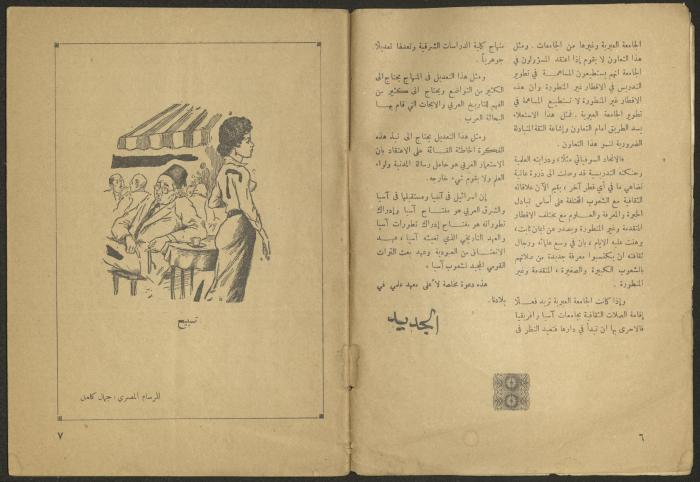 الجامعة العبرية وغيرها من الجامعات . ومثل
هذا التعاون لا يقوم إذا اعتقد المسؤولون في
الجامعة انهم يستطيعون المساهمة في تطوير
التدريس في الاقطار غير المتطورة وان هذه
الاقطار غير المتطورة لا تستطيع المساهمة في
تطوير الجامعة العبرية . فمثل هذا الاستعلاء
يسد الطريق أمام التعاون وإشاعة الثقة المتبادلة
الضرورية لنمو هذا التعاون .
فالاتحاد السوفياتي مثلا، ودرايته العلمية
وحنكته التدريسية قد وصلت الى ذروة عالية
تضاهي ما في أي قطر آخر ، يقيم الآن علاقاته
الثقافية مع الشعوب المختلفة على أساس تبادل
الخبرة والمعرفة والعلوم مع مختلف الاقطار
المتقدمة وغير المتطورة ويصدر عن ايمان ثابت،
برهنت عليه الايام ، بان في وسع علمائه ورجال
ثقافته ان يكتسبوا معرفة جديدة من صلاتهم
بالشعوب الكبيرة والصغيرة ، المتقدمة وغير
المتطورة .
وإذا كانت الجامعة العبرية تريد فعلا
إقامة الصلات الثقافية بجامعات آسيا وافريقيا
فالاحرى بها ان تبدأ في دارها فتعيد النظر في
منهاج كلية الدراسات الشرقية وتعدلها تعديلا
جوهرياً .
ومثل هذا التعديل في المنهاج يحتاج الى
الكثير من التواضع ويحتاج الى كثير من
الفهم للتاريخ العربي والابحاث التي قام بها
البحاثة العرب
ومثل هذا التعديل يحتاج الى نبذ هذه
الفكرة الخاطئة القائمة على الاعتقاد بان
الاستعمار الغربي هو حامل رسالة المدنية ولواء
العلم ولا يقوم شيء خارجه .
إن اسرائيل في آسيا ومستقبلها في آسيا
والشرق العربي هو مفتاح آسيا وإدراك
تطوراته هو مفتاح إدراك تطورات آسيا
والعهد التاريخي الذي تعيشه آسيا ، عهد
الانعتاق من العبودية وعهد بعث التراث
القومي المجيد لشعوب آسيا .
هذه دعوة مخلصة لأعلى معهد علمي في
بلادنا .
الجديد
٦
تسبيح
للرسام المصري : جمال كامل
٧